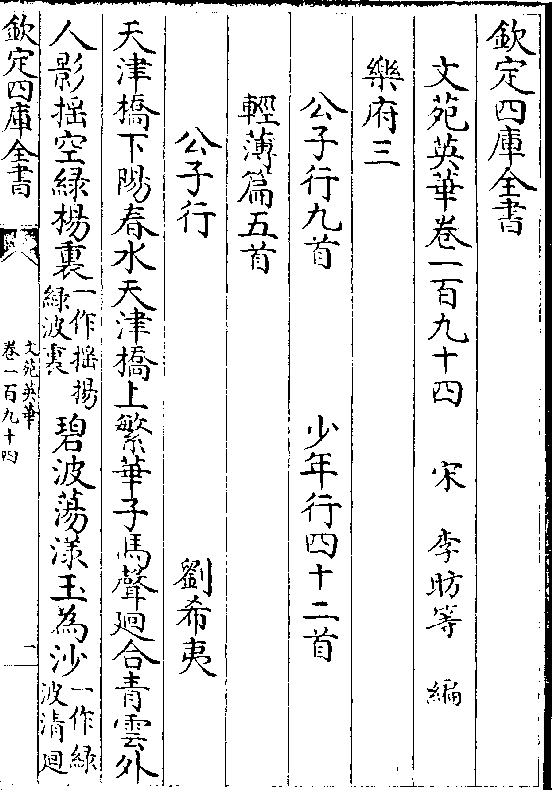 欽定四庫全書
文苑英華卷一百九十四 宋 李昉等 編
樂府三
公子行九首 少年行四十二首
輕薄篇五首
公子行 劉希夷
天津橋下陽春水天津橋上繁華子馬聲廻合青雲外
人影揺空綠楊裏一作揺揚綠波裏碧波蕩漾玉為沙一作綠波清廻
欽定四庫全書
文苑英華
卷一百九十四
一